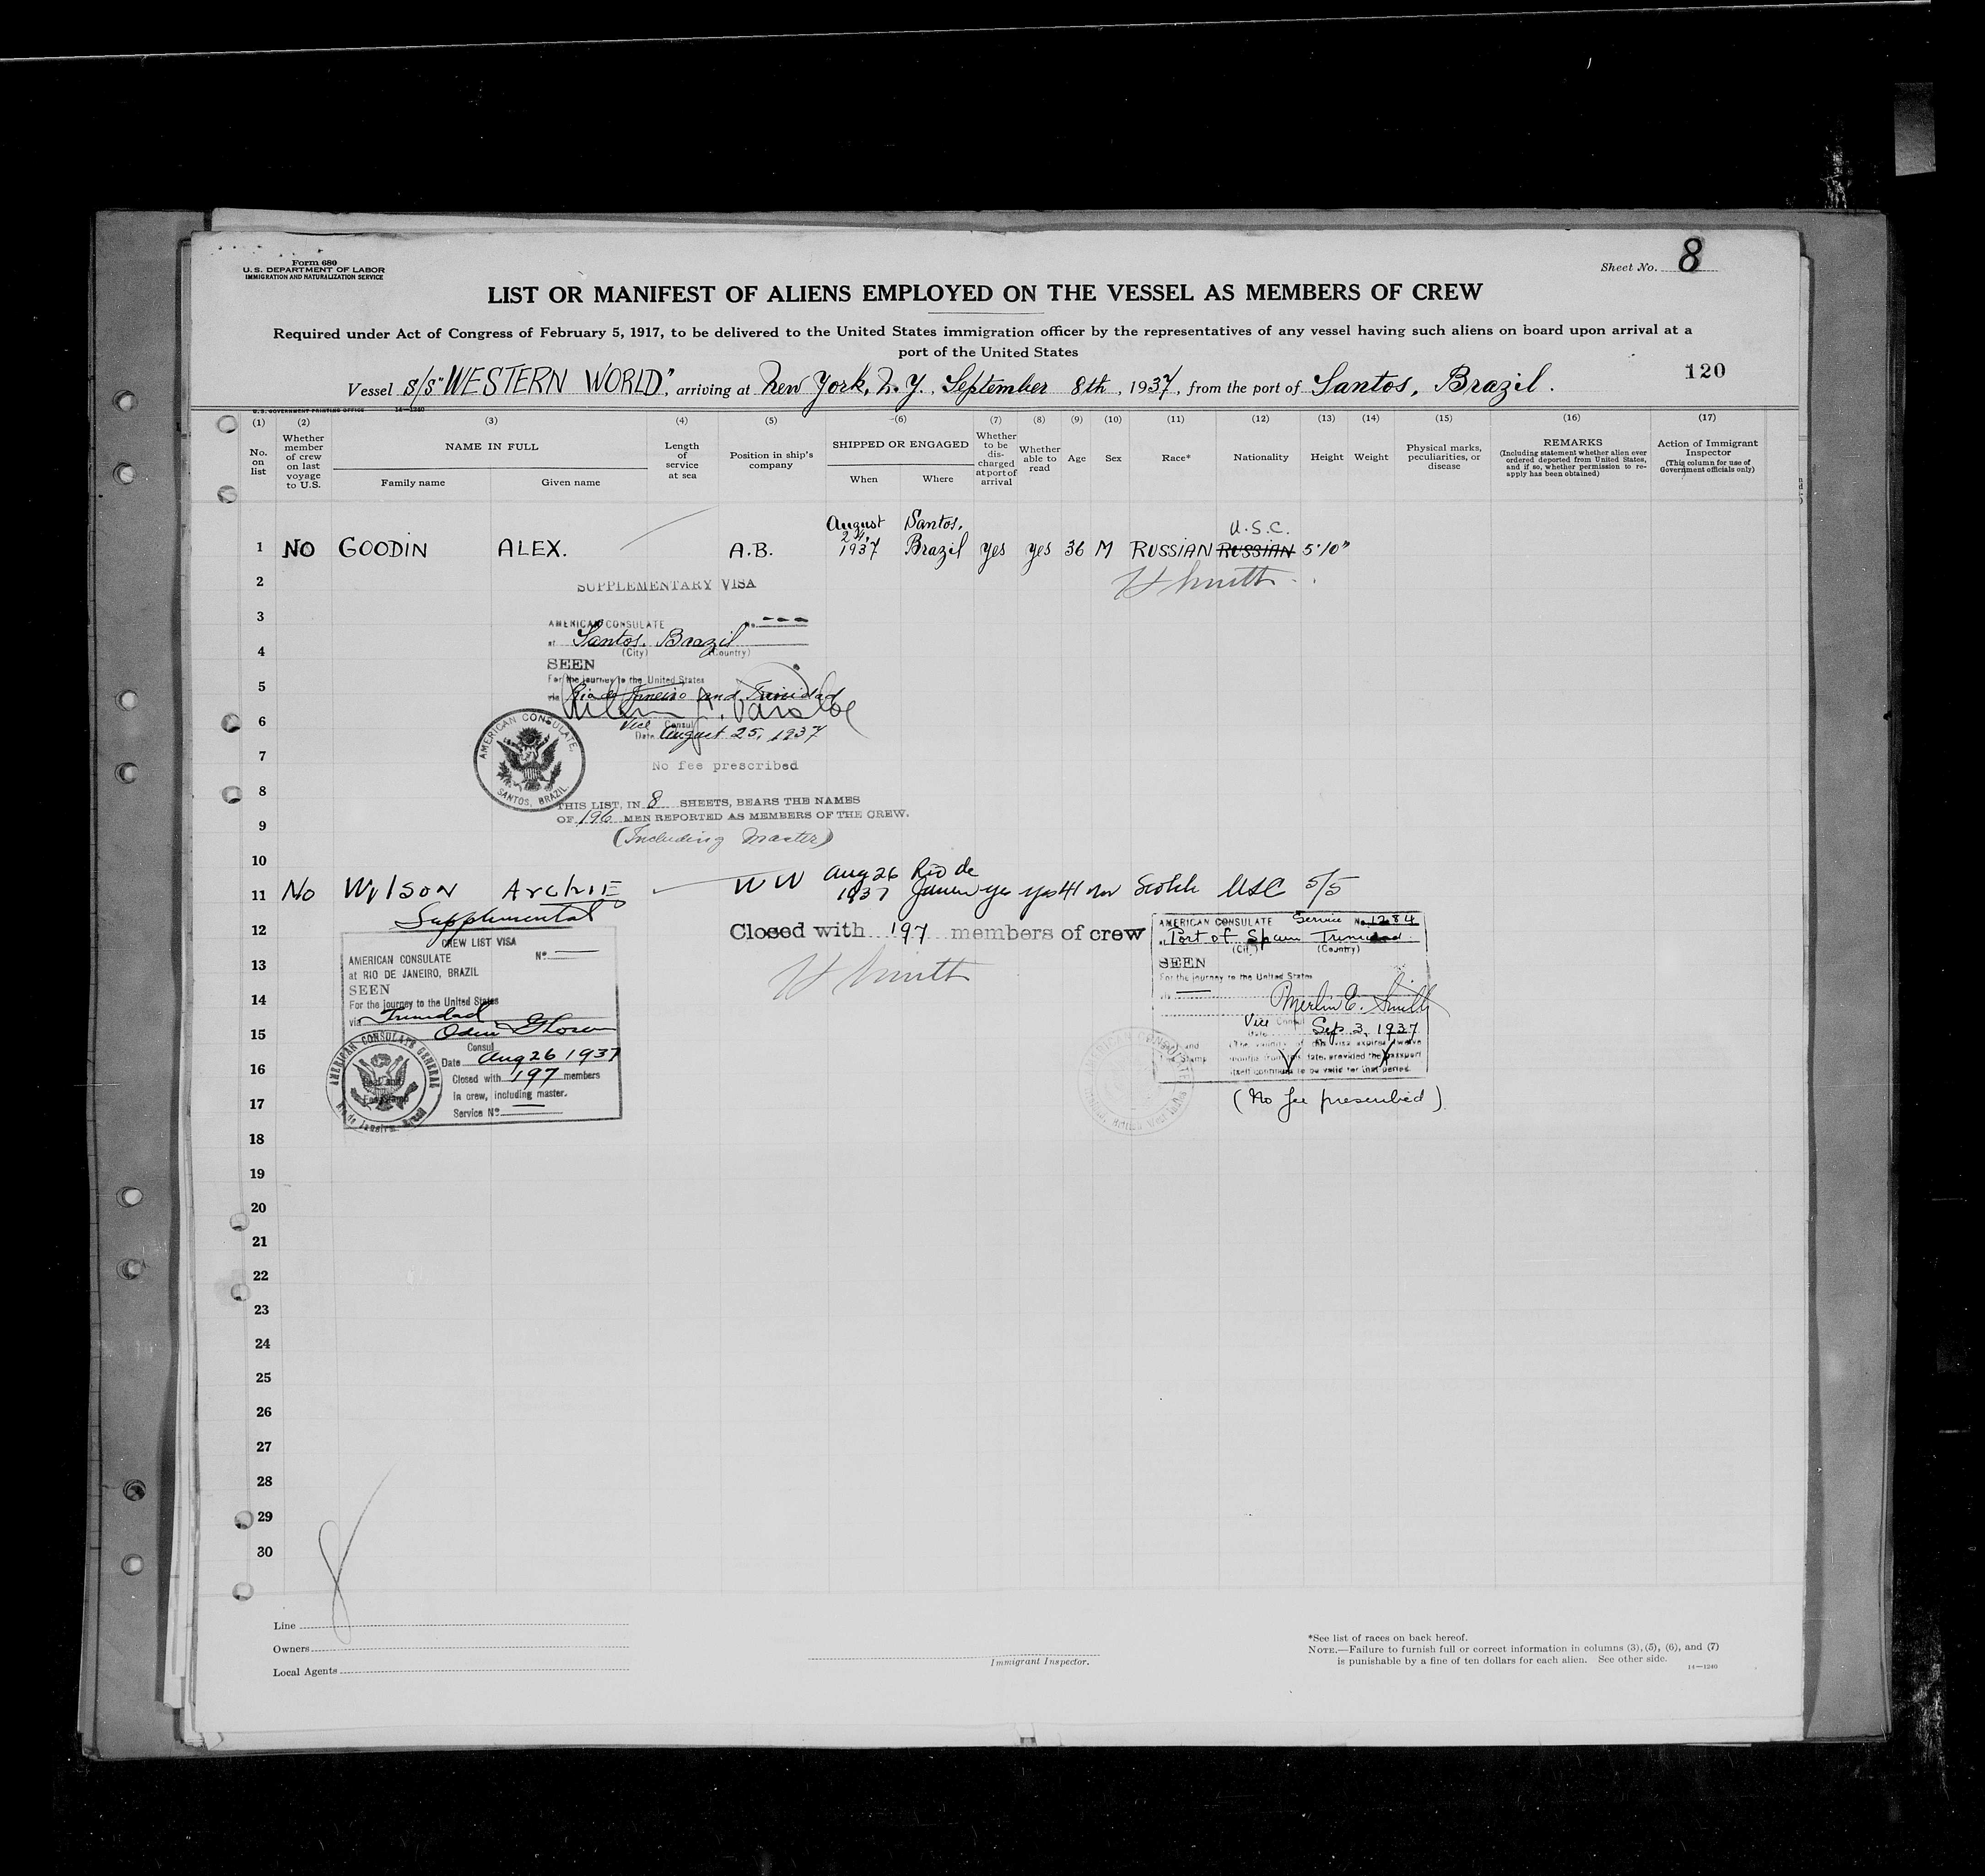 Form 680
U.S. DEPARTMENT OF LABOR
IMMIGRATION AND NATURALIZATION SERVICE
Sheet No. 8
LIST OR MANIFEST OF ALIENS EMPLOYED ON THE VESSEL AS MEMBERS OF CREW
Required under Act of Congress of February 5, 1917, to be delivered to the United States immigration officer by the representatives of any vessel having such aliens on board upon arrival at a
port of the United States
120
Vessel S/S "WESTERN WORLD", arriving at New York, N.Y. September 8th, 1937, from the port of Santos, Brazil.
U.S. GOVERNMENT PRINTING OFFICE 14—1240
(1) (2) (3) (4) (5) (6) (7) (8) (9) (10) (11) (12) (13) (14) (15) (16) (17)
No. on list
Whether member of crew on last voyage to U.S.
NAME IN FULL
Family name
Given name
Length of service at sea
Position in ship's company
SHIPPED OR ENGAGED
When
Where
Whether to be discharged at port of arrival
Whether able to read
Age
Sex
Race*
Nationality
Height
Weight
Physical marks, peculiarities, or disease
REMARKS
(Including statement whether alien ever ordered deported from United States, and if so, whether permission to reapply has been obtained)
Action of Immigrant Inspector
(This column for use of Government officials only)
1 NO GOODIN ALEX. A.B. August 24, 1937 Santos, Brazil yes yes 36 M RUSSIAN RUSSIAN U.S.C. 5'10"
2
H Smith
SUPPLEMENTARY VISA
3
AMERICAN CONSULATE No. ---
at Santos, Brazil
4
(City) (Country)
SEEN
For the journey to the United States
5
via Rio de Janeiro and Trinidad
6
Vice Consul
Date August 25, 1937
AMERICAN CONSULATE
SANTOS, BRAZIL
7
No fee prescribed
8
THIS LIST, IN 8 SHEETS, BEARS THE NAMES
OF 196 MEN REPORTED AS MEMBERS OF THE CREW.
9
(Including Master)
10
11 No Wilson Archie WW Aug 26 1937 Rio de Janeiro yes yes 41 M Scotch USC 5/5
Supplemental
12
Closed with 197 members of crew
H Smith
CREW LIST VISA
AMERICAN CONSULATE No
at RIO DE JANEIRO, BRAZIL
SEEN
For the journey to the United States
via Trinidad
Consul
Date Aug 26 1937
Closed with 197 members
In crew, including master.
Service No
AMERICAN CONSULATE GENERAL
Rio de Janeiro, Brazil
AMERICAN CONSULATE Service No. 1284
Port of Spain Trinidad
(City) (Country)
SEEN
For the journey to the United States
via
Merlin E. Smith
Vice Consul
Date Sep. 3, 1937
(The validity of this visa expires twelve
months from this date, provided the passport
itself continues to be valid for that period.
(No fee prescribed)
13
14
15
16
17
18
19
20
21
22
23
24
25
26
27
28
29
30
8
Line
Owners
Local Agents
Immigrant Inspector.
*See list of races on back hereof.
NOTE.—Failure to furnish full or correct information in columns (3), (5), (6), and (7)
is punishable by a fine of ten dollars for each alien. See other side.
14—1240